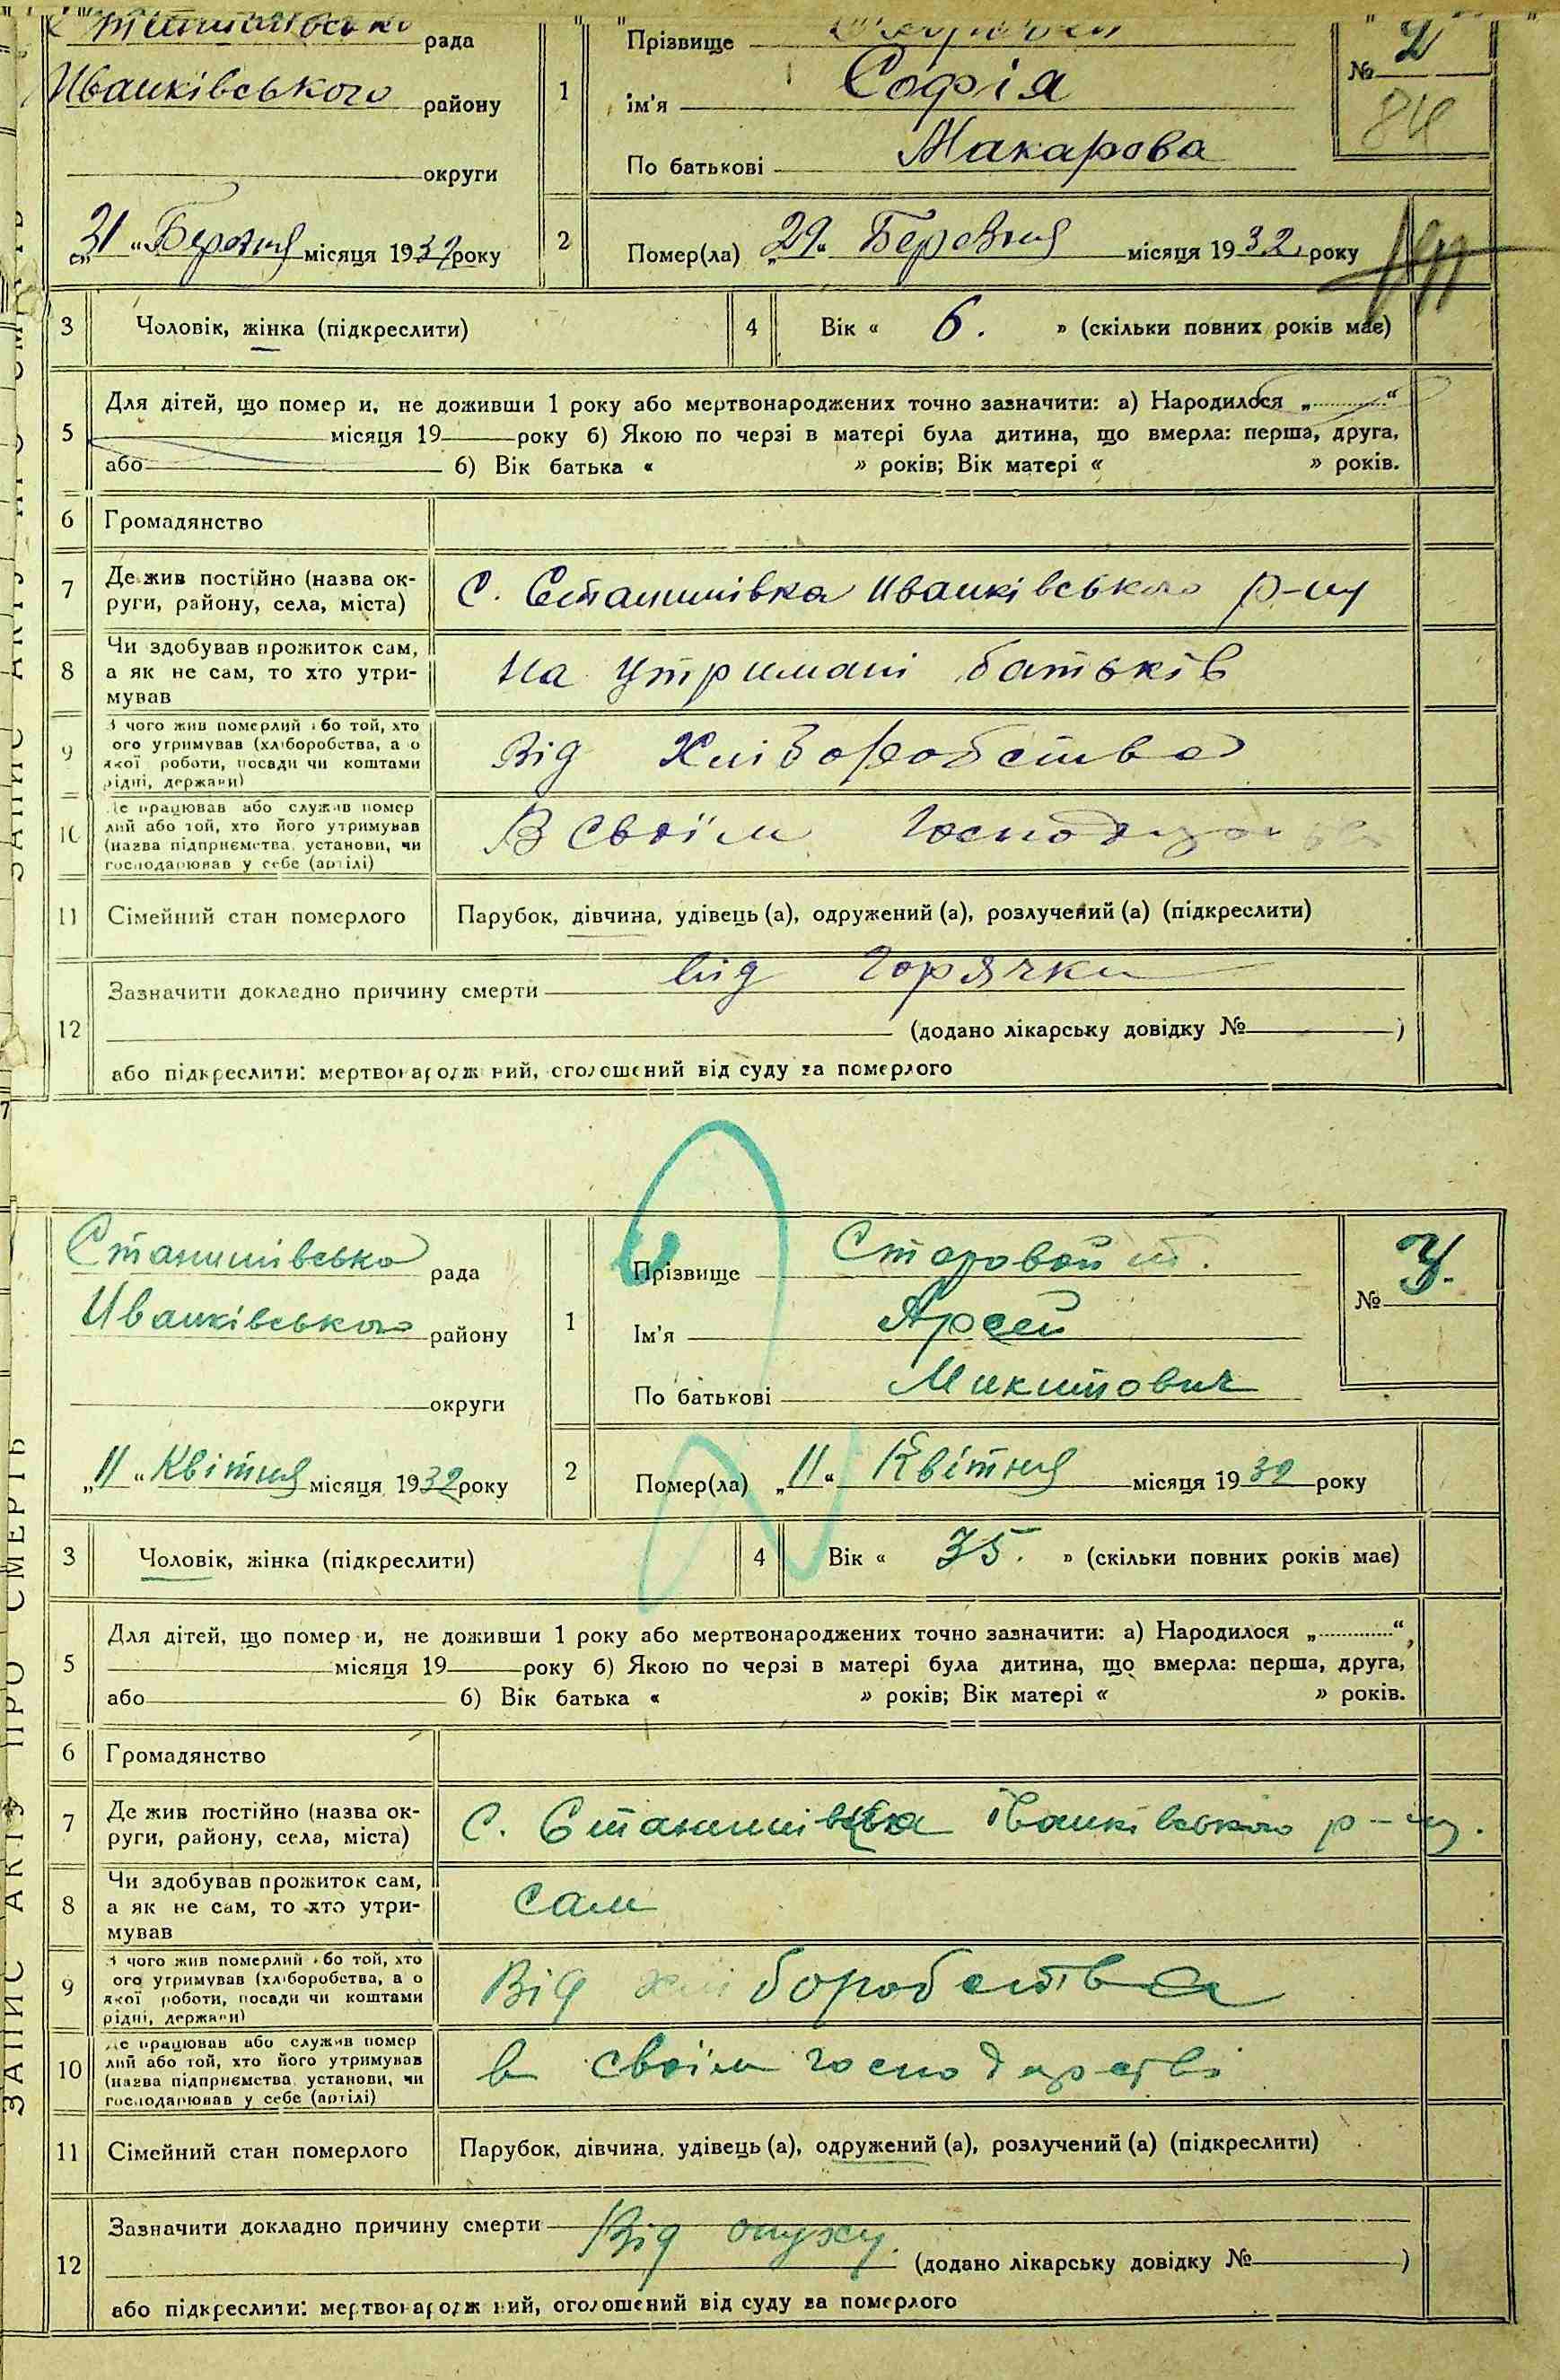 рада
Иванківського району
округи
„31“ Березня місяця 1932 року
1
Прізвище
ім'я Софія
По батькові Макарова
№ 2
84
2 Помер(ла) „29“ Березня місяця 1932 року
3 Чоловік, жінка (підкреслити)
4 Вік « 6. » (скільки повних років має)
5 Для дітей, що помер и, не доживши 1 року або мертвонароджених точно зазначити: а) Народилося „ “
місяця 19 року б) Якою по черзі в матері була дитина, що вмерла: перша, друга,
або б) Вік батька « » років; Вік матері « » років.
6 Громадянство
7 Де жив постійно (назва ок-
руги, району, села, міста)
С. Станишівка Иванківського р-ну
8 Чи здобував прожиток сам,
а як не сам, то хто утри-
мував
на утримані батьків
9 З чого жив померлий або той, хто
ого утримував (хліборобства, а о
якої роботи, посади чи коштами
рідні, держави)
Від Хліборобства
10 Де працював або служив помер
лий або той, хто його утримував
(назва підприємства, установи, чи
господарював у себе (артілі)
В своїм
11 Сімейний стан померлого
Парубок, дівчина, удівець (а), одружений (а), розлучений (а) (підкреслити)
12 Зазначити докладно причину смерти Від Горячки
(додано лікарську довідку № )
або підкреслити: мертвонародж ний, оголошений від суду за померлого
Станишівсько рада
Иванківського району
округи
„11“ Квітня місяця 1932 року
1
Прізвище Старовойт.
Ім'я Арсей
По батькові Микитович
№ 3.
2 Помер(ла) „11“ Квітня місяця 1932 року
3 Чоловік, жінка (підкреслити)
4 Вік « 35. » (скільки повних років має)
5 Для дітей, що помер и, не доживши 1 року або мертвонароджених точно зазначити: а) Народилося „ “,
місяця 19 року б) Якою по черзі в матері була дитина, що вмерла: перша, друга,
або б) Вік батька « » років; Вік матері « » років.
6 Громадянство
7 Де жив постійно (назва ок-
руги, району, села, міста)
С. Станишівка Іванківського р-ну.
8 Чи здобував прожиток сам,
а як не сам, то хто утри-
мував
сам
9 З чого жив померлий або той, хто
ого утримував (хліборобства, а о
якої роботи, посади чи коштами
рідні, держави)
Від хліборобства
10 Де працював або служив помер
лий або той, хто його утримував
(назва підприємства, установи, чи
господарював у себе (артілі)
в своїм господарстві
11 Сімейний стан померлого
Парубок, дівчина, удівець (а), одружений (а), розлучений (а) (підкреслити)
12 Зазначити докладно причину смерти Від опуху.
(додано лікарську довідку № )
або підкреслити: мертвонародж ний, оголошений від суду за померлого
ЗАПИС АКТУ ПРО СМЕРТЬ